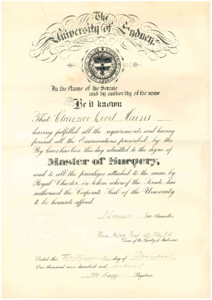 The
University of Sydney
In the Name of the Senate
and by authority of the same
Be it known
That Clarence Cecil
having fulfilled all the requirements and having
passed all the Examinations prescribed by the
By laws has been this day admitted to the degree of
Master of Surgery,
and to all the privileges attached to the same by
Royal Charter, in token whereof the Senate has
authorised the Corporate Seal of the University
to be hereunto affixed.
Chancellor
Dean of the Faculty of Medicine
Dated this day of
One thousand nine hundred and
Registrar